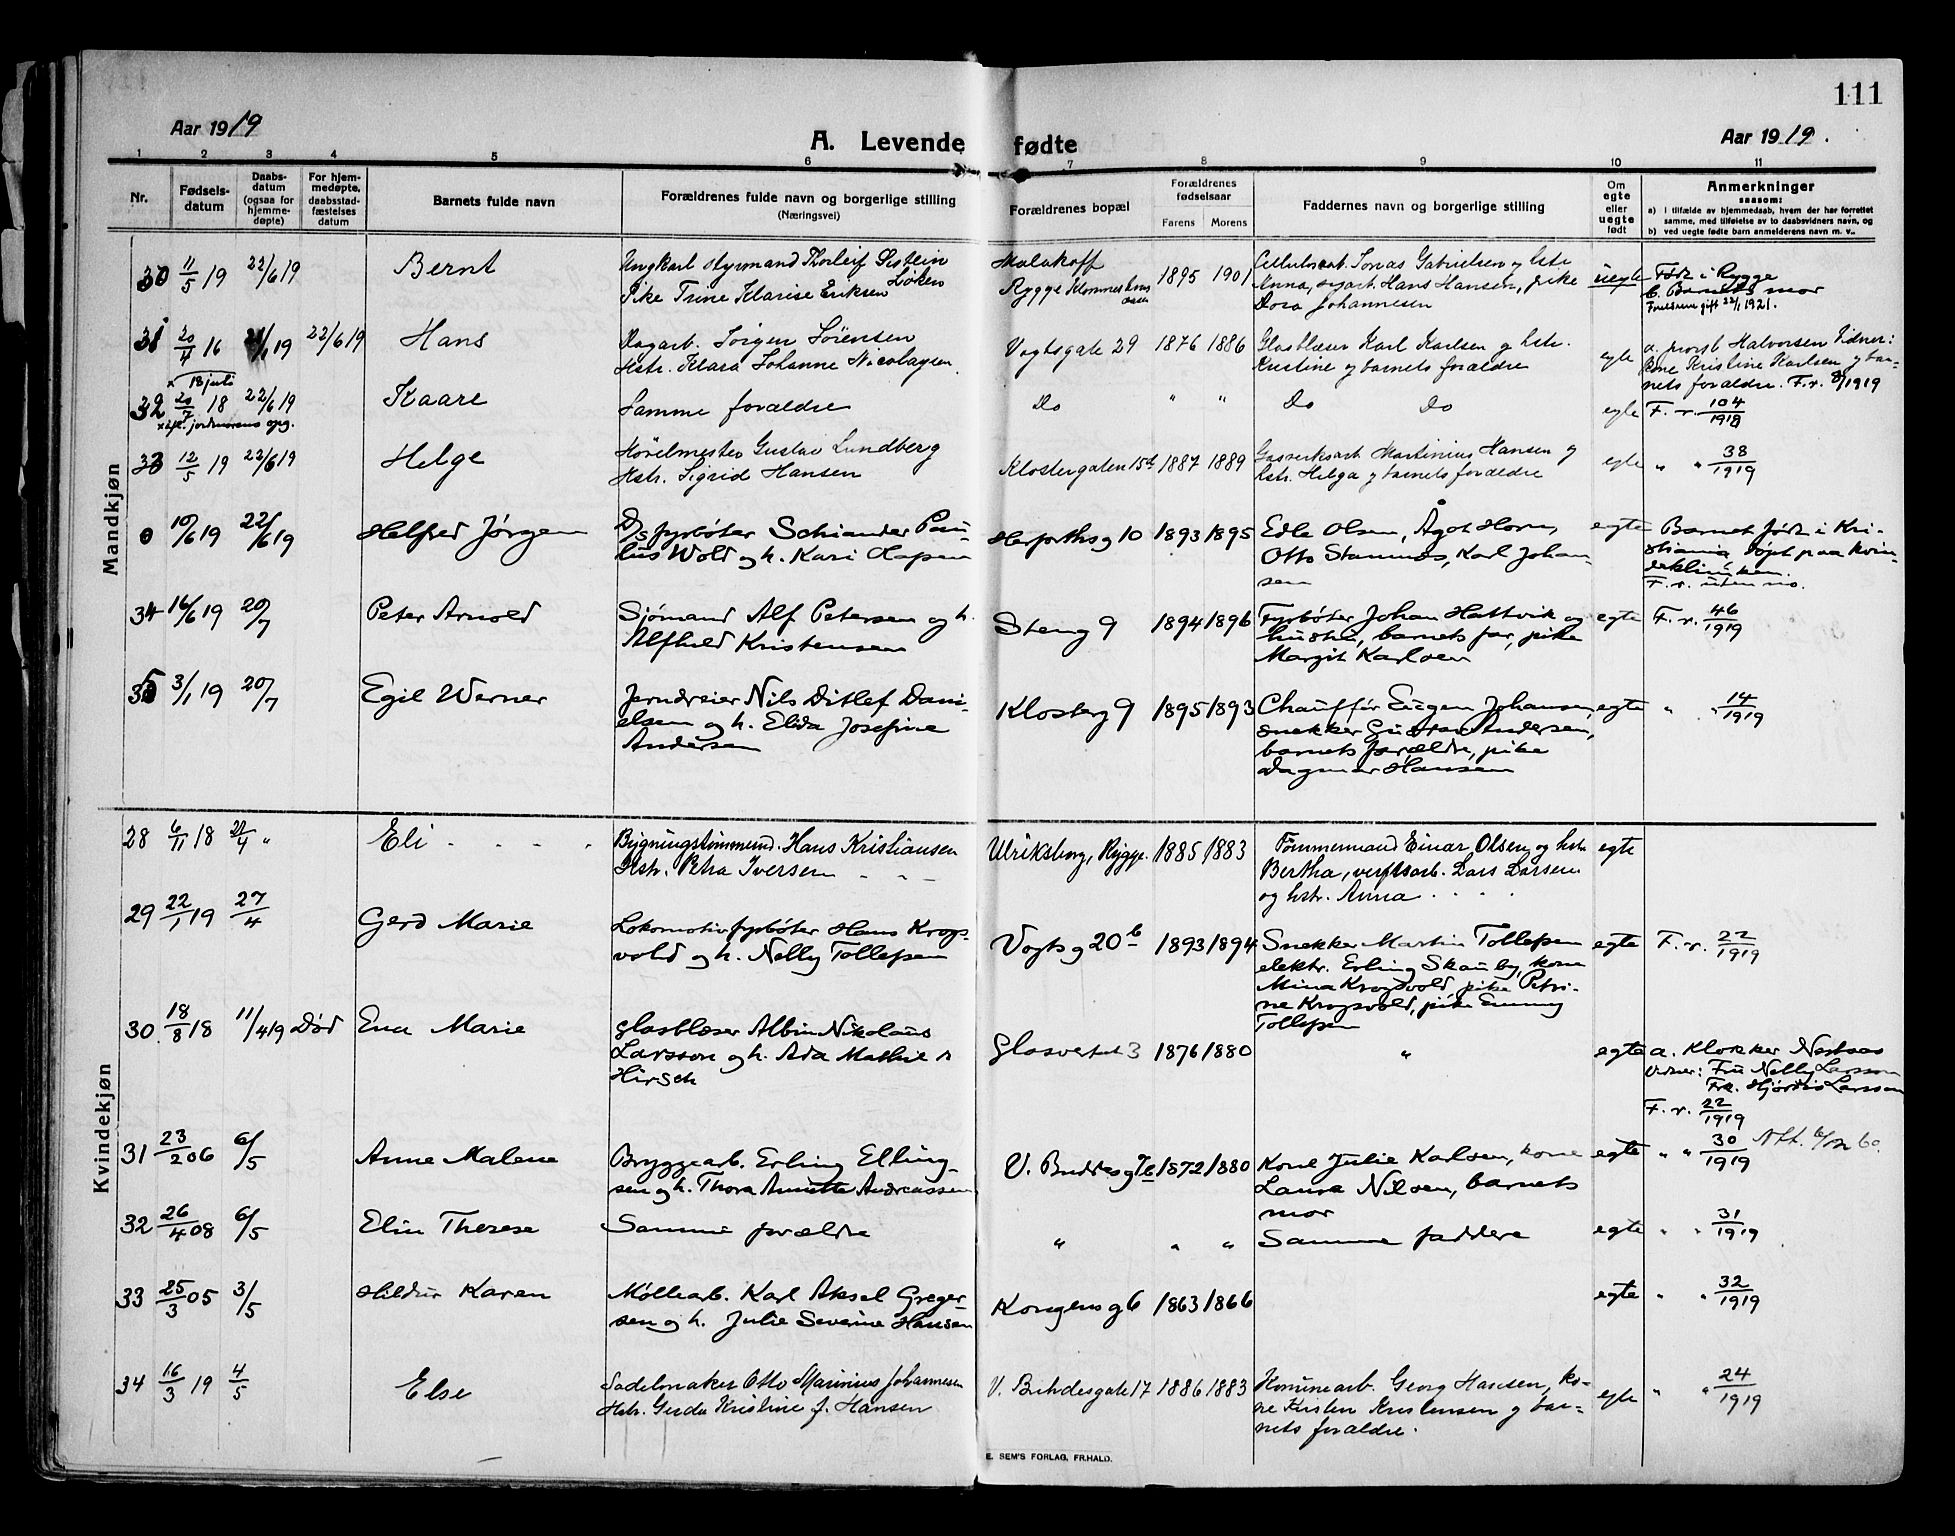 111
Aar 1919
A. Levende fødte
Aar 1919.
1 2 3 4 5 6 7 8 9 10 11
Nr.
Fødsels-
datum
Daabs-
datum
(ogsaa for
hjemme-
døpte)
For hjem-
medøpte,
daabsstad-
fæstelses
datum
Barnets fulde navn
Forældrenes fulde navn og borgerlige stilling
(Næringsvei)
Forældrenes bopæl
Forældrenes
fødselsaar
Farens Morens
Faddernes navn og borgerlige stilling
Om
egte
eller
uegte
født
Anmerkninger
saasom:
a) i tilfælde av hjemmedaab, hvem der har forrettet
samme, med tilføielse av to daabsvidners navn, og
b) ved uegte fødte barn anmelderens navn m. v..
Mandkjøn
30 11/5 19 22/6 19 Bernt Ungkarl styrmand Thorleif Løken Malakoff 1895 1901 Jonas Gabrielsen g hstr. uegte Født i Rygge
Pike Trine Klarise Eriksen Rygge Anna, Hans Hansen, pike b. Barnets mor
Dora Johannesen Foreldrene gift 22/1 1921.
31 20/4 16 19 22/6 19 Hans Dagarb. Jørgen Sørensen Vogtsgate 29 1876 1886 Glasblæser Karl Karlsen g hstr. egte a. provst Halvorsen Vidner:
Hstr. Klara Johanne Nicolaysen. Kristine g barnets forældre Kone Kristine Karlsen g bar-
nets forældre. F.v. 8/1919
x 18 juli
32 20/7 18 22/6 19 Kaare Samme forældre Do " " Do Do egte F. v. 104/1918
x efl. jordmorens opg.
33 12/5 19 22/6 19 Helge Høvelmester Gustav Lundberg Klostergaten 15b 1887 1889 Gasverksarb. Martinius Hansen g egte " " 38/1919
Hstr. Sigrid Hansen hstr. Helga g barnets forældre
0 10/6 19 22/6 19 Helfred Jørgen D/s fyrbøter Schiander Pau- Herforthsg 10 1893 1895 Edle Olsen, Ågot Horn, egte Barnet født i Kri-
lus Wold og h. Kari Otto Stamnes, Karl Johan- stiania døpt paa kvin-
sen deklinikken.
F. v. uten no.
34 16/6 19 20/7 Peter Arnold Sjømand Alf Petersen og h. Steng 9 1894 1896 Fyrbøter Johan Hattvik og egte F. v. 46/1919
Alfhild Kristensen hustru, barnets far, pike
Margit Karlsen
35 3/1 19 20/7 Egil Werner Jerndreier Nils Ditlef Dani- Klosterg 9 1895 1893 Chauffør Eugen Johansen, egte " " 14/1919
elsen og h. Elida Josefine snekker Gustav Andersen,
Andersen barnets forældre, pike
Dagmar Hansen
Kvindekjøn
28 6/11 18 21/4 " Eli Bygningstømmermd. Hans Kristiansen Ulriksborg, Rygge. 1885 1883 Tømmermand Einar Olsen og hstr. egte
Hstr. Petra Iversen Bertha, verftsarb. Lars Larsen
og hstr. Anna
29 22/1 19 27/4 Gerd Marie Lokomotivfyrbøter Hans Krogs- Vogtsg 20b 1893 1894 Snekker Martin Tollefsen egte F. v. 22/1919
vold og h. Nelly Tollefsen elektr. Erling Skauby, kone
Mina Krogsvold, pike Petri-
ne Krogsvold, pike Emmy
Tollefsen
30 18/8 18 11/4 19 Død Ena Marie Glasblæser Albin Nikolaus Glasverket 3 1876 1880 " egte a. Klokker
Larsson og h. Ada Mathie Vidner: Fru Nelly Larsson
Hirsch Frk. Hjørdis Larsson
F. v. 22/1919
31 23/2 06 6/5 Anne Malene Bryggearb. Erling Elling- V. Buddesg 7b 1872 1880 Kone Julie Karlsen, kone egte " " 30/1919
sen og h. Thora Annette Andreassen Laura Nilsen, barnets
mor
32 26/4 08 6/5 Elin Therese Samme forældre " " " Samme faddere egte " " 31/1919
33 25/3 05 3/5 Hildur Karen Møllearb. Karl Aksel Greger- Kongensg 6 1863 1866 egte " " 32/1919
sen og h. Julie Severine Hansen
34 16/3 19 4/5 Else Sadelmaker Otto Marinius Johannesen V. Buddesgate 17 1886 1883 Kommearb. Georg Hansen, ko- egte " " 24/1919
Hstr. Gerda Kristine f. Hansen ne Kirsten Kristensen g bar-
nets forældre.
E. SEM'S FORLAG, FR.HALD.